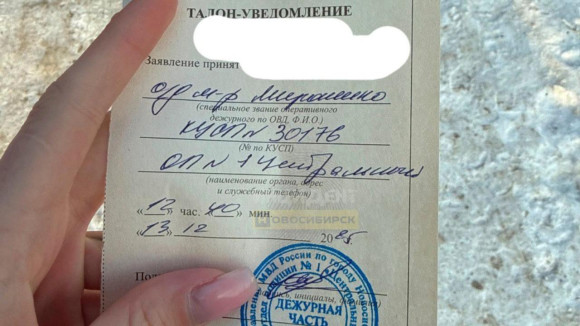 ТАЛОН-УВЕДОМЛЕНИЕ
Заявление принят
о/д м-р Мирошенко
(специальное звание оперативного
дежурного по ОВД, Ф.И.О.)
КУСП № 30176
(№ по КУСП)
ОП № 1 Центральный
(наименование органа, адрес
и служебный телефон)
«12» час. 40» мин.
НОВОСИБИРСК
«13» 12 2025.
инициалы,
МВД России по городу Новосиб
полиции № 1 «Центральный
ДЕЖУРНАЯ
ЧАСТЬ